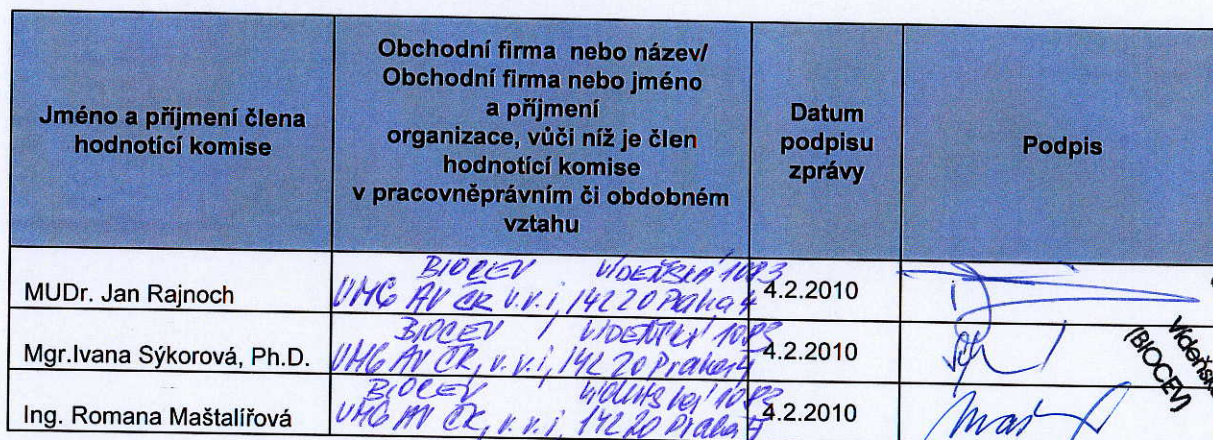 Jméno a příjmení člena
hodnotící komise
Obchodní firma nebo název/
Obchodní firma nebo jméno
a příjmení
organizace, vůči níž je člen
hodnotící komise
v pracovněprávním či obdobném
vztahu
Datum
podpisu
zprávy
Podpis
MUDr. Jan Rajnoch
BIOCEV VÍDEŇSKÁ 1083
UMG AV ČR v.v.i, 14220 Praha 4
4.2.2010
Mgr.Ivana Sýkorová, Ph.D.
BIOCEV VÍDEŇSKÁ 1083
UMG AV ČR, v.v.i, 14220 Praha 4
4.2.2010
Ing. Romana Maštalířová
BIOCEV Vídeňská 1083
UMG AV ČR, v.v.i, 14220 Praha 4
4.2.2010
Vídeňská
(BIOCEV)